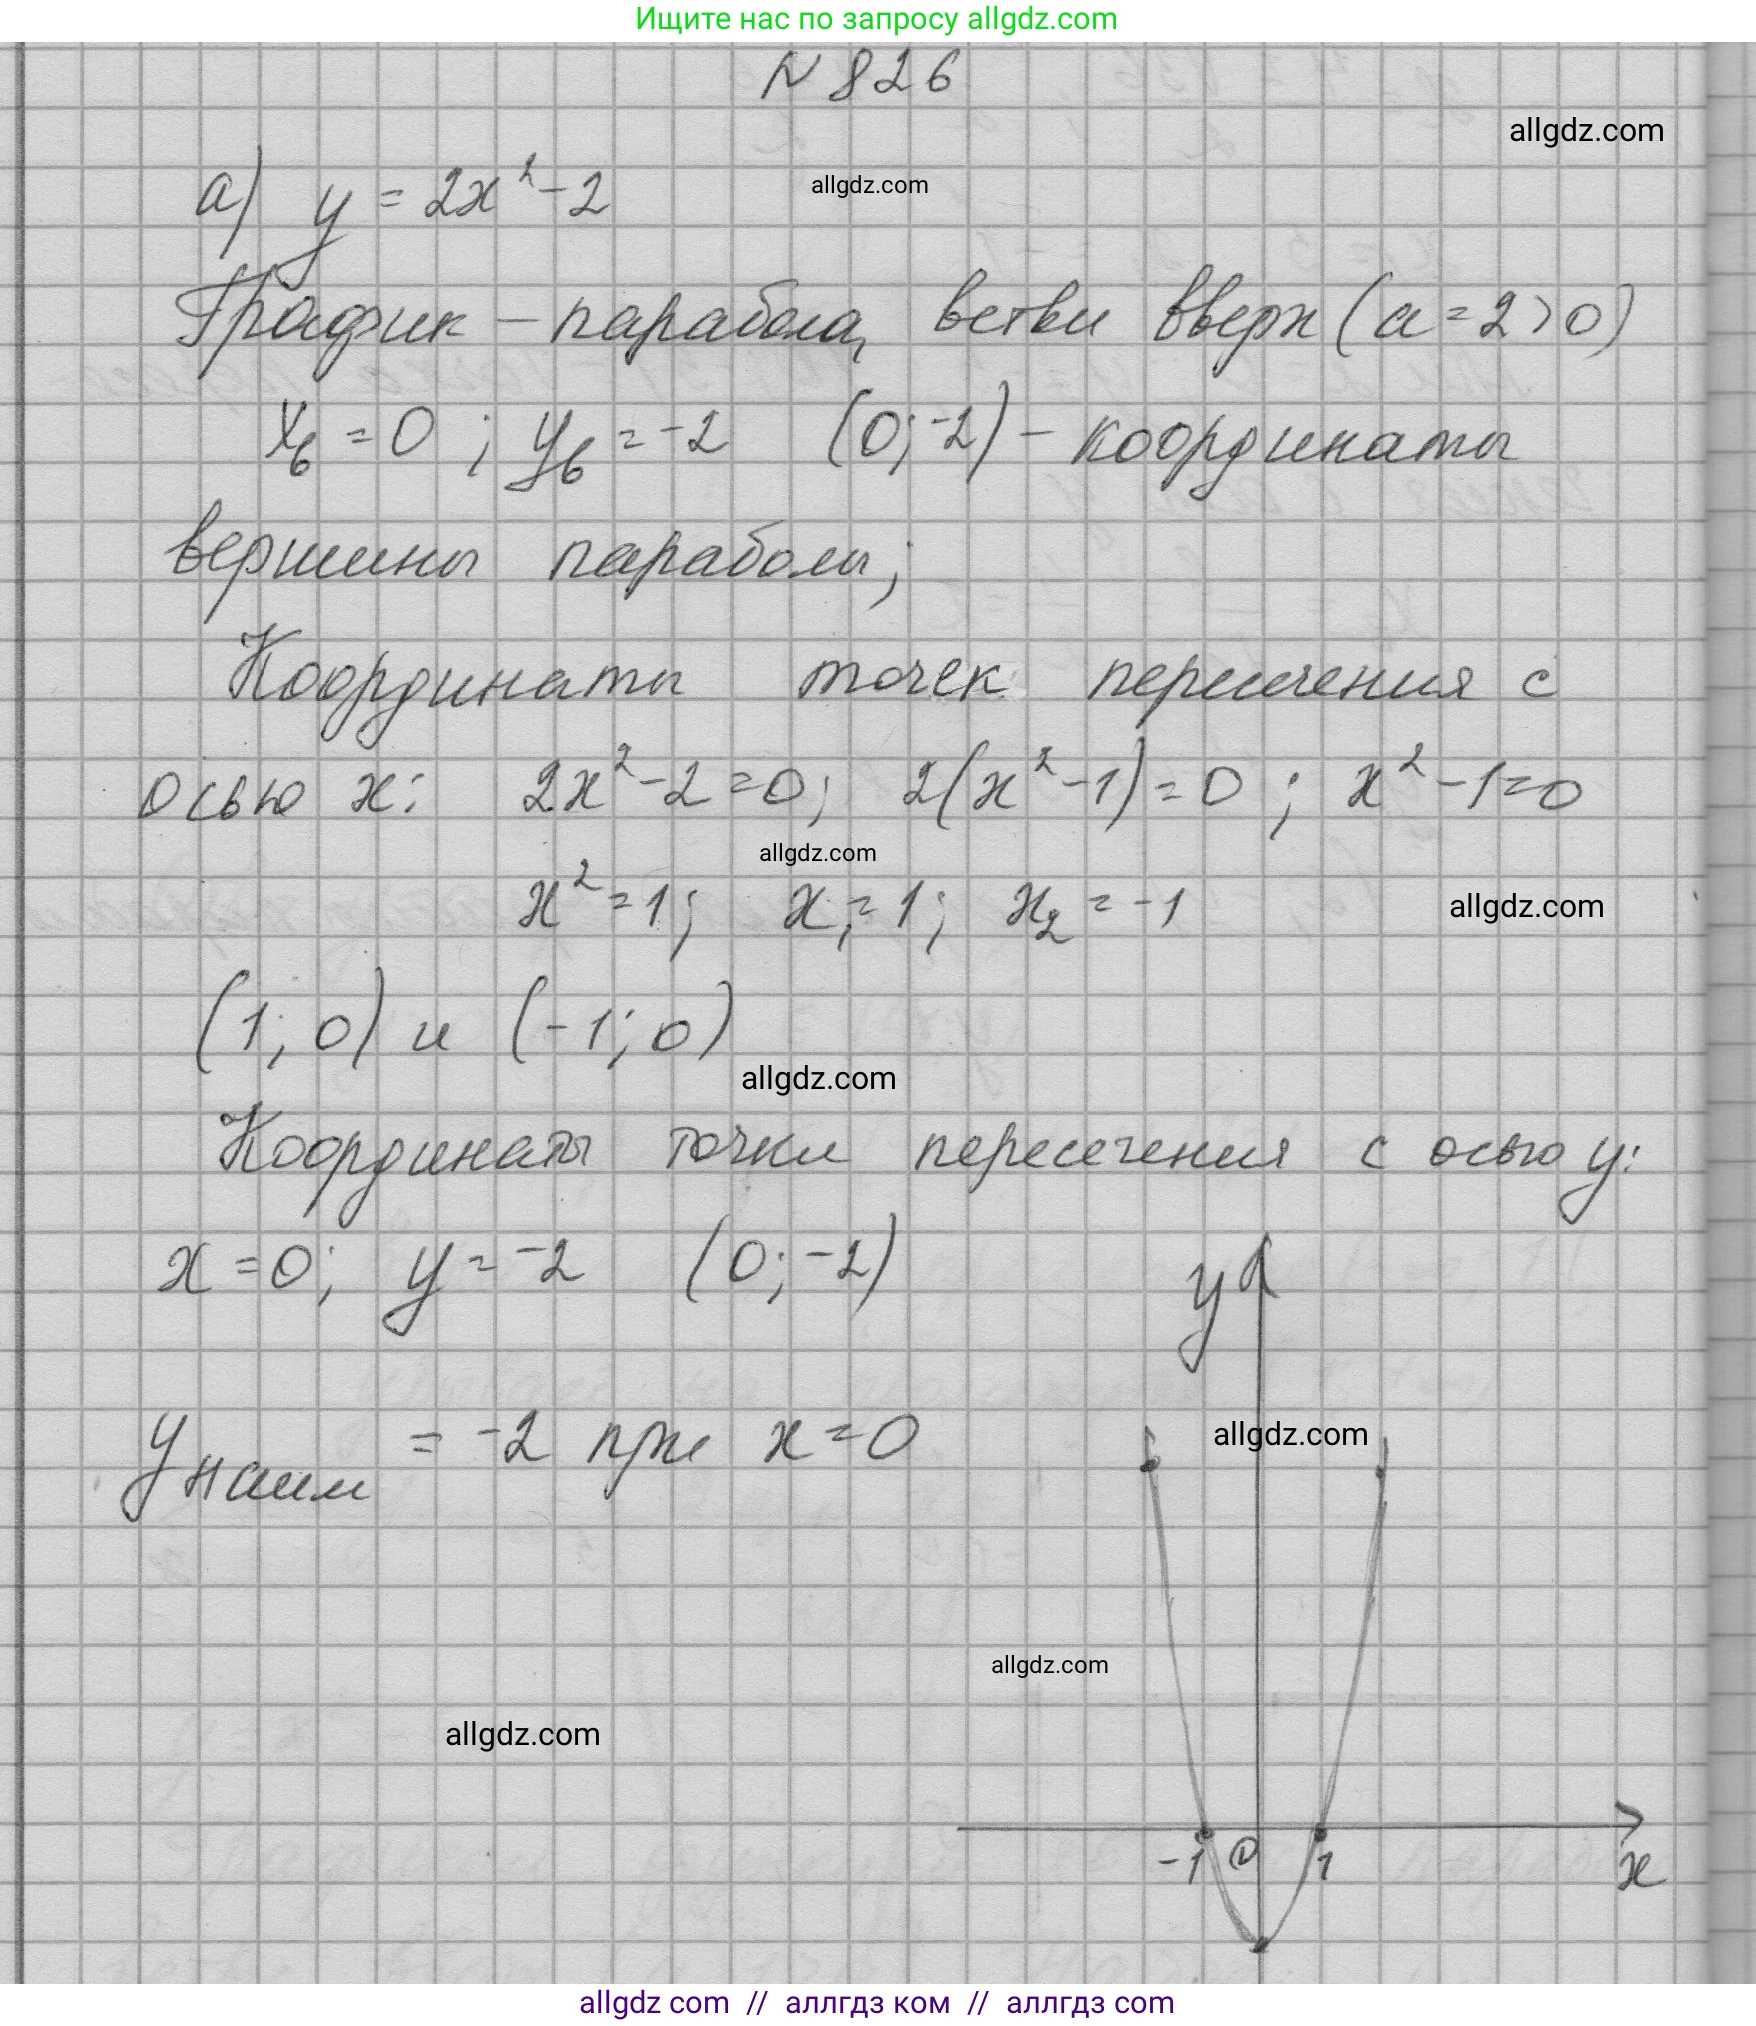 Ищите нас по запросу allgdz.com
N 826
allgdz.com
а) y = 2x² - 2
allgdz.com
График - парабола, ветви вверх (a = 2 > 0)
xв = 0 ; yв = -2 (0; -2) - координаты
вершины параболы;
Координаты точек пересечения с
осью x: 2x² - 2 = 0; 2(x² - 1) = 0 ; x² - 1 = 0
allgdz.com
x² = 1; x₁ = 1; x₂ = -1
allgdz.com
(1; 0) и (-1; 0)
allgdz.com
Координаты точки пересечения с осью y:
x = 0; y = -2 (0; -2)
y
yнаим = -2 при x = 0
allgdz.com
allgdz.com
allgdz.com
-1 0 1 x
allgdz com // аллгдз ком // аллгдз com